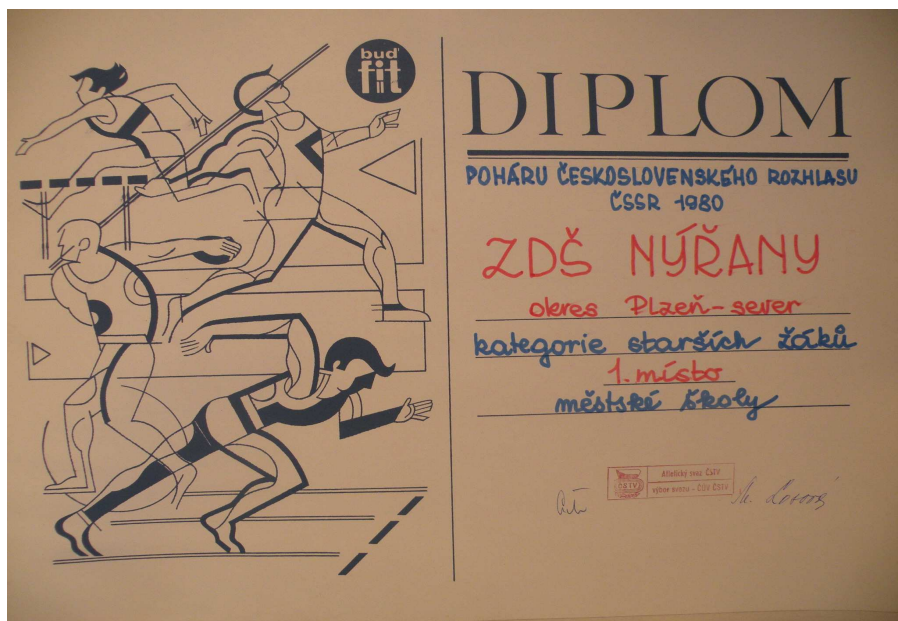 buď
fit
DIPLOM
POHÁRU ČESKOSLOVENSKÉHO ROZHLASU
ČSSR 1980
ZDŠ NÝŘANY
okres Plzeň-sever
kategorie starších žáků
1. místo
městské školy
Atletický svaz ČSTV
výbor svazu - ČÚV ČSTV